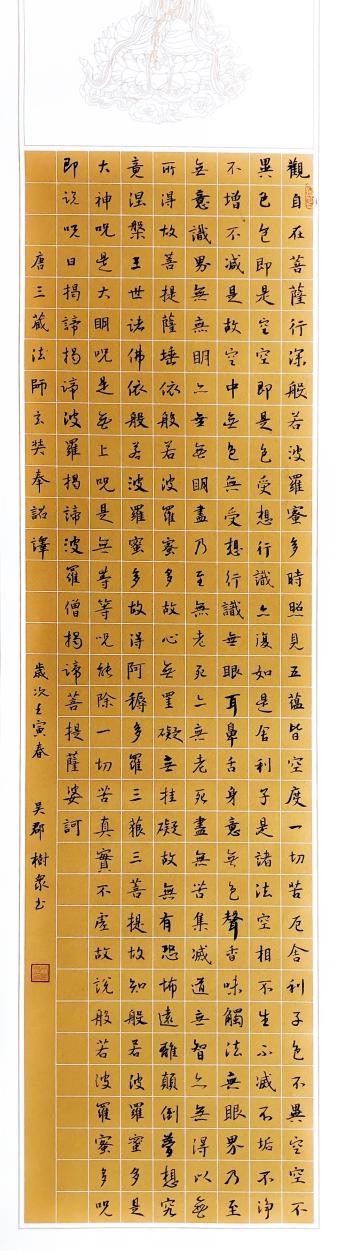 觀自在菩薩行深般若波羅蜜多時照見五蘊皆空度一切苦厄舍利子色不異空空不
異色色即是空空即是色受想行識亦復如是舍利子是諸法空相不生不滅不垢不淨
不增不減是故空中無色無受想行識無眼耳鼻舌身意無色聲香味觸法無眼界乃至
無意識界無無明亦無無明盡乃至無老死亦無老死盡無苦集滅道无智亦無得以無
所得故菩提薩埵依般若波羅蜜多故心無罣礙无挂礙故無有恐怖遠離顛倒夢想究
竟涅槃三世諸佛依般若波羅蜜多故得阿耨多羅三藐三菩提故知般若波羅蜜多是
大神呪是大明呪是無上呪是无等等呪能除一切苦真實不虛故說般若波羅蜜多呪
即說呪曰揭諦揭諦波羅揭諦波羅僧揭諦菩提薩婆訶
唐三藏法師玄奘奉詔譯 歲次壬寅春 吳郡樹泉书